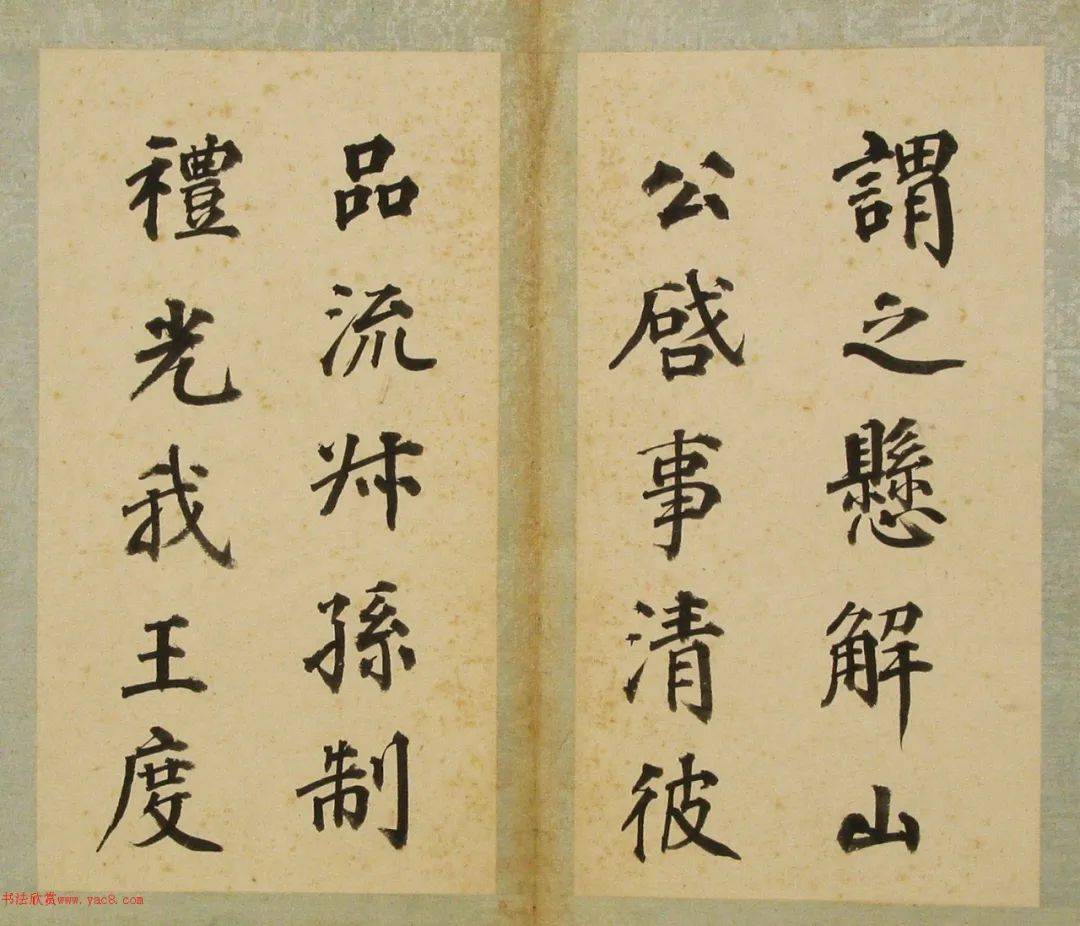 謂之懸解山
公啓事清彼
品流叔孫制
禮光我王度
书法欣赏www.yac8.com